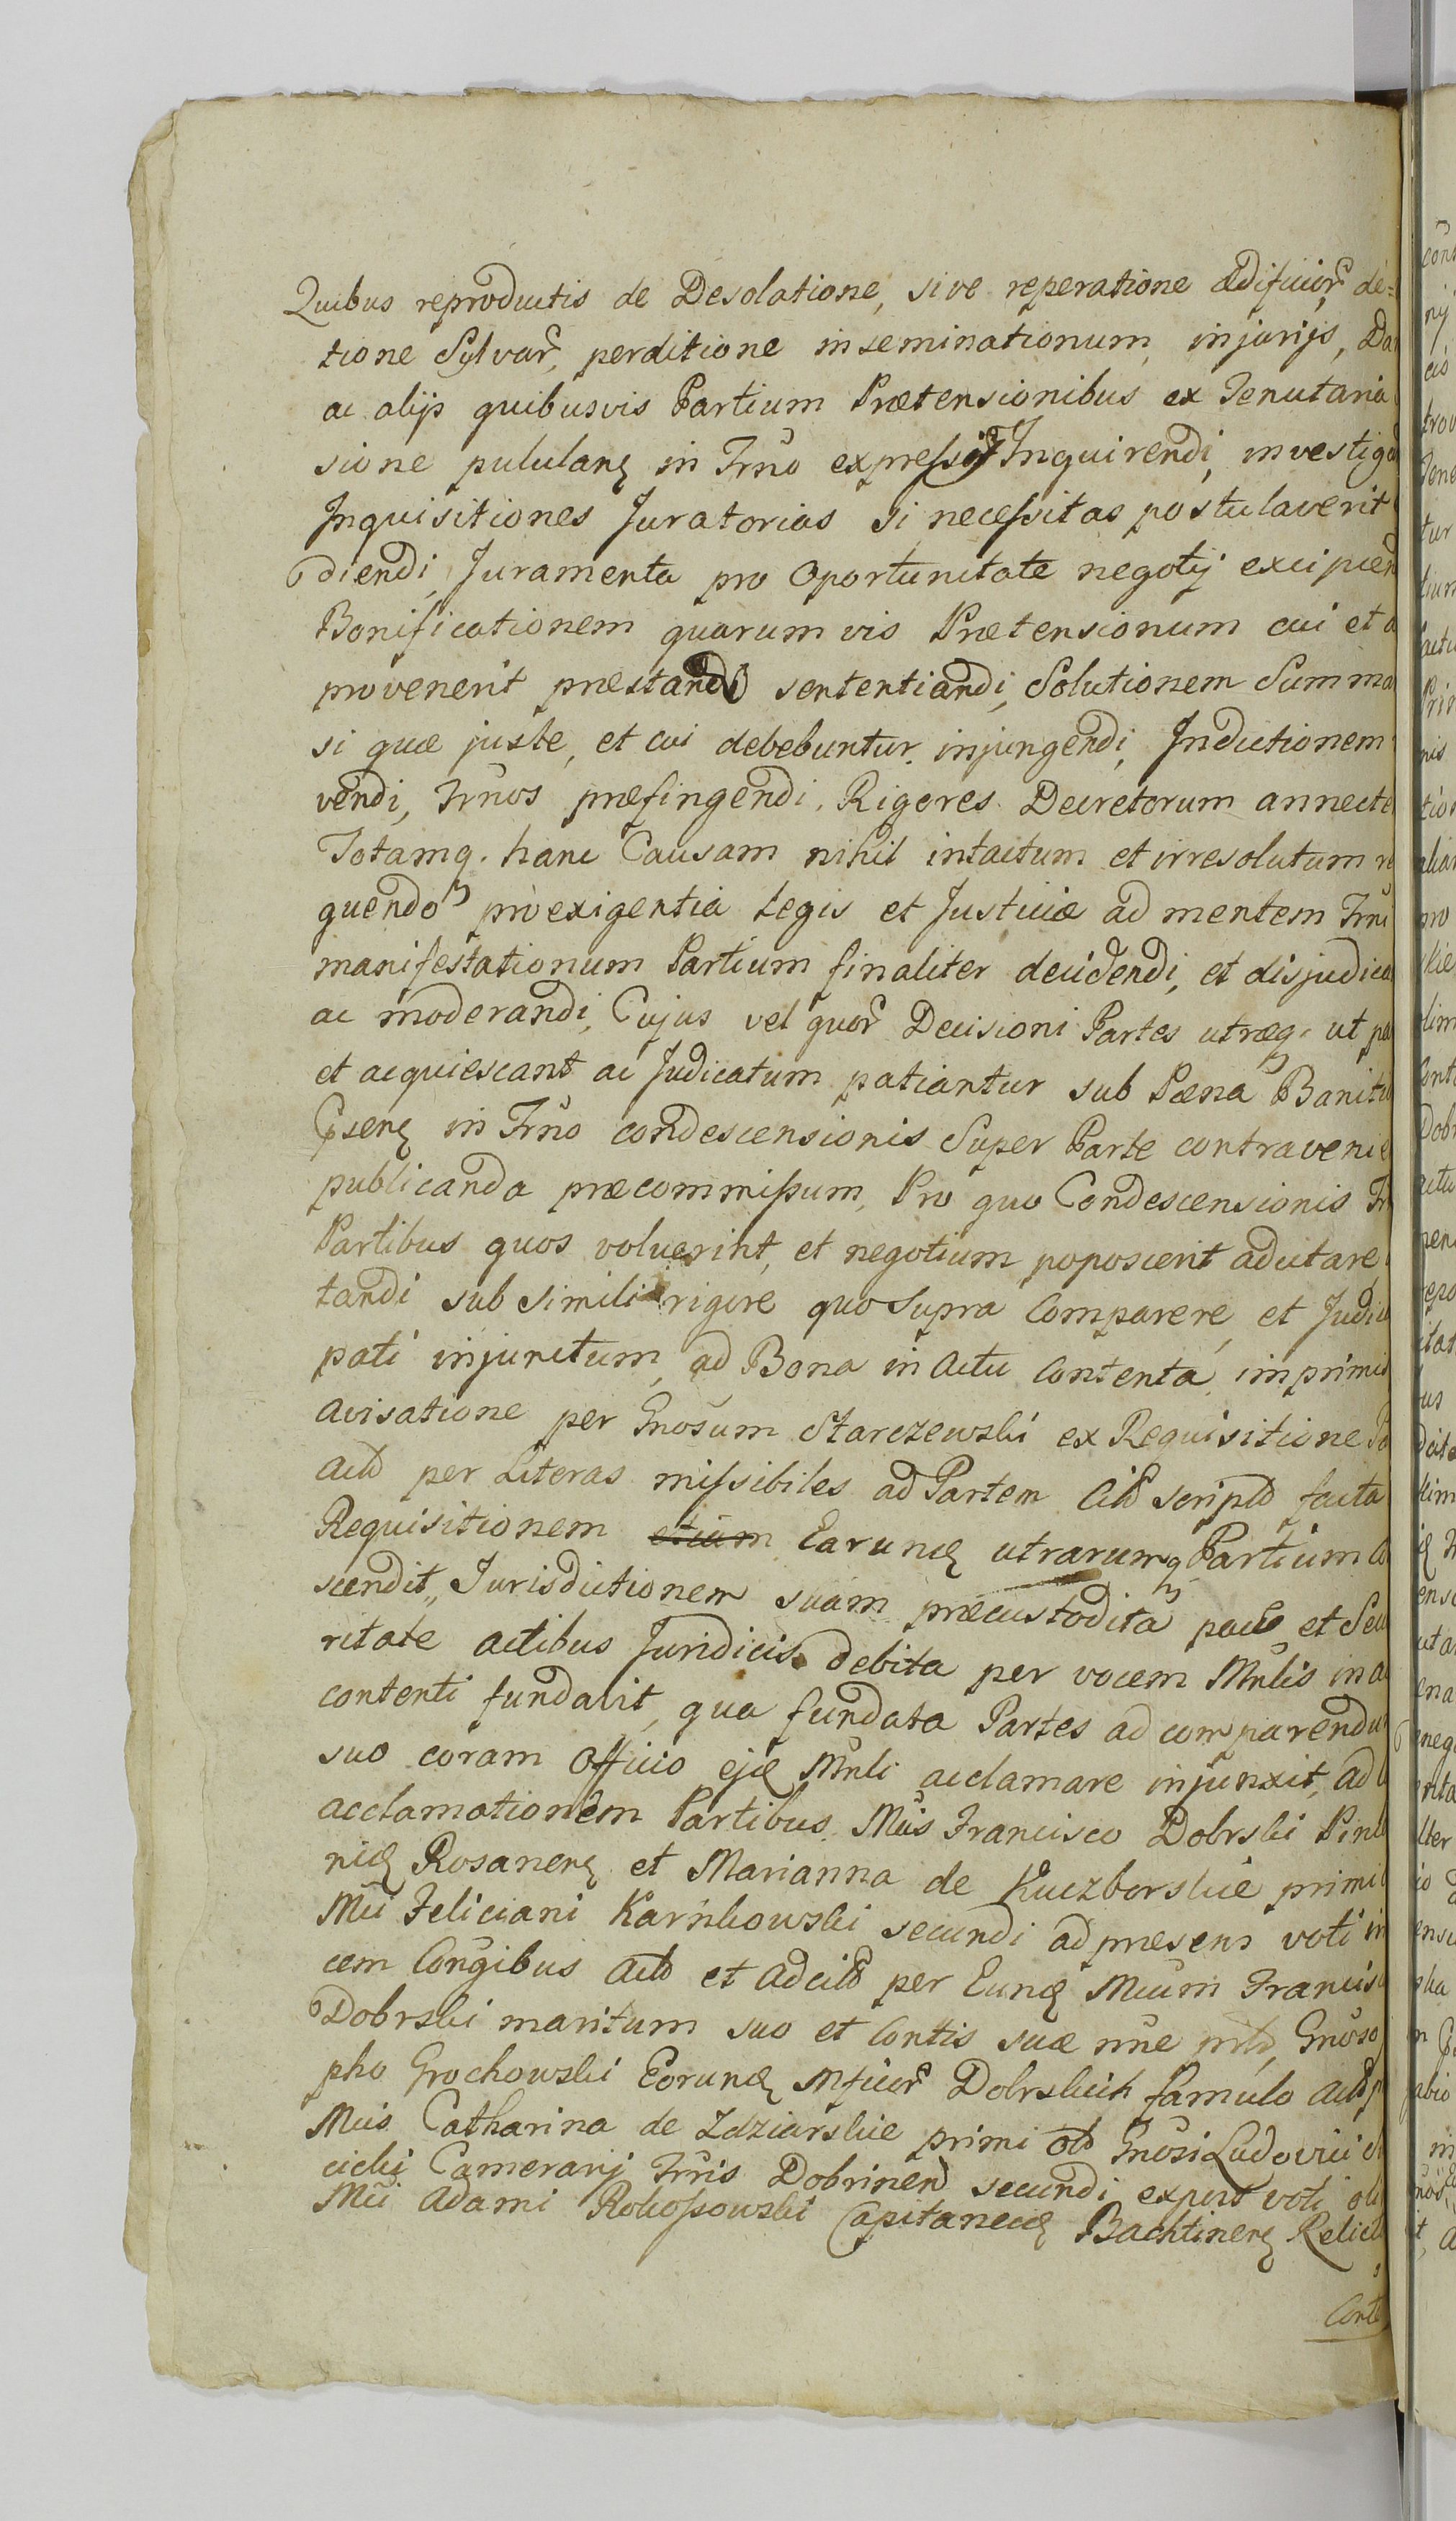 Quibus reproductis de Desolatione, sive reperatione ædificior de=
tione Sylvar, perditione inseminationum, injurijs, Da
ac alijs quibusvis Partium Prætensionibus ex Tenutaria
sione pululanę in Trno expressis Inquirendi, investiga
Inquisitiones Juratorias si necessitas postulaverit
diendi, Juramenta pro Oportunitate negotij excipien
Bonificationem quarumvis Prætensionum cui et a
provenerit præstandi sententiandi, Solutionem Summa
si quæ juste, et cui debebuntur injungendi, Inductionem
vendi, Trnos præfingendi, Rigores Decretorum annecte
Totamq. hanc Causam nihil intactum et irresolutum re
quendo pro exigentia Legis et Justiciæ ad mentem Trni
manifestationum Partium finaliter decidendi, et disjudica
ac moderandi, Cujus vel quor Decisioni Partes utræq. ut pa
et acquiescant ac Judicatum patiantur sub Pæna Banitio
in Trno condescensionis Super Parte contravenie
publicanda præcommissum, Pro quo Condescensionis Tr
Partibus quos voluerint, et negotium poposcerit adcitare
tandi sub simili rigore quo supra Comparere, et Judic
pati injunctum, ad Bona in Actu Contenta, imprimis
avisatione per Gnosum Starczewski ex Requisitione Pa
Actо per Literas missibiles ad Partem Citō scriptō facta
Requisitionem etiam Earundę utrarumq Partium Co
scendit, Jurisdictionem suam præcustodita pace et Secu
ritate actibus Juridicis debita per vocem Mnlis in a
contenti fundavit, qua fundata Partes ad comparendu
suo coram Officio ejdę Mnli acclamare injunxit, ad
acclamationem Partibus Mcis Francisco Dobrski Pinc
nidę Rosanenę et Marianna de Kuczborskie primi
Mci Feliciani Karnkowski secundi ad præsens voti in
cem Congibus Acto et adcito per Eundę Mcum Francis
Dobrski maritum suo et Contis suæ nne Gnoso
pho Grochowski Eorundę Mficor Dobrskich famulo
Mcis Catharina de Zdziarskie primi Gnosi Ludovici
cicki Camerarij Trris Dobrinen secundi voti
Mci Adami Rokossowski Capitanei Bachtinenę Relict
Cont